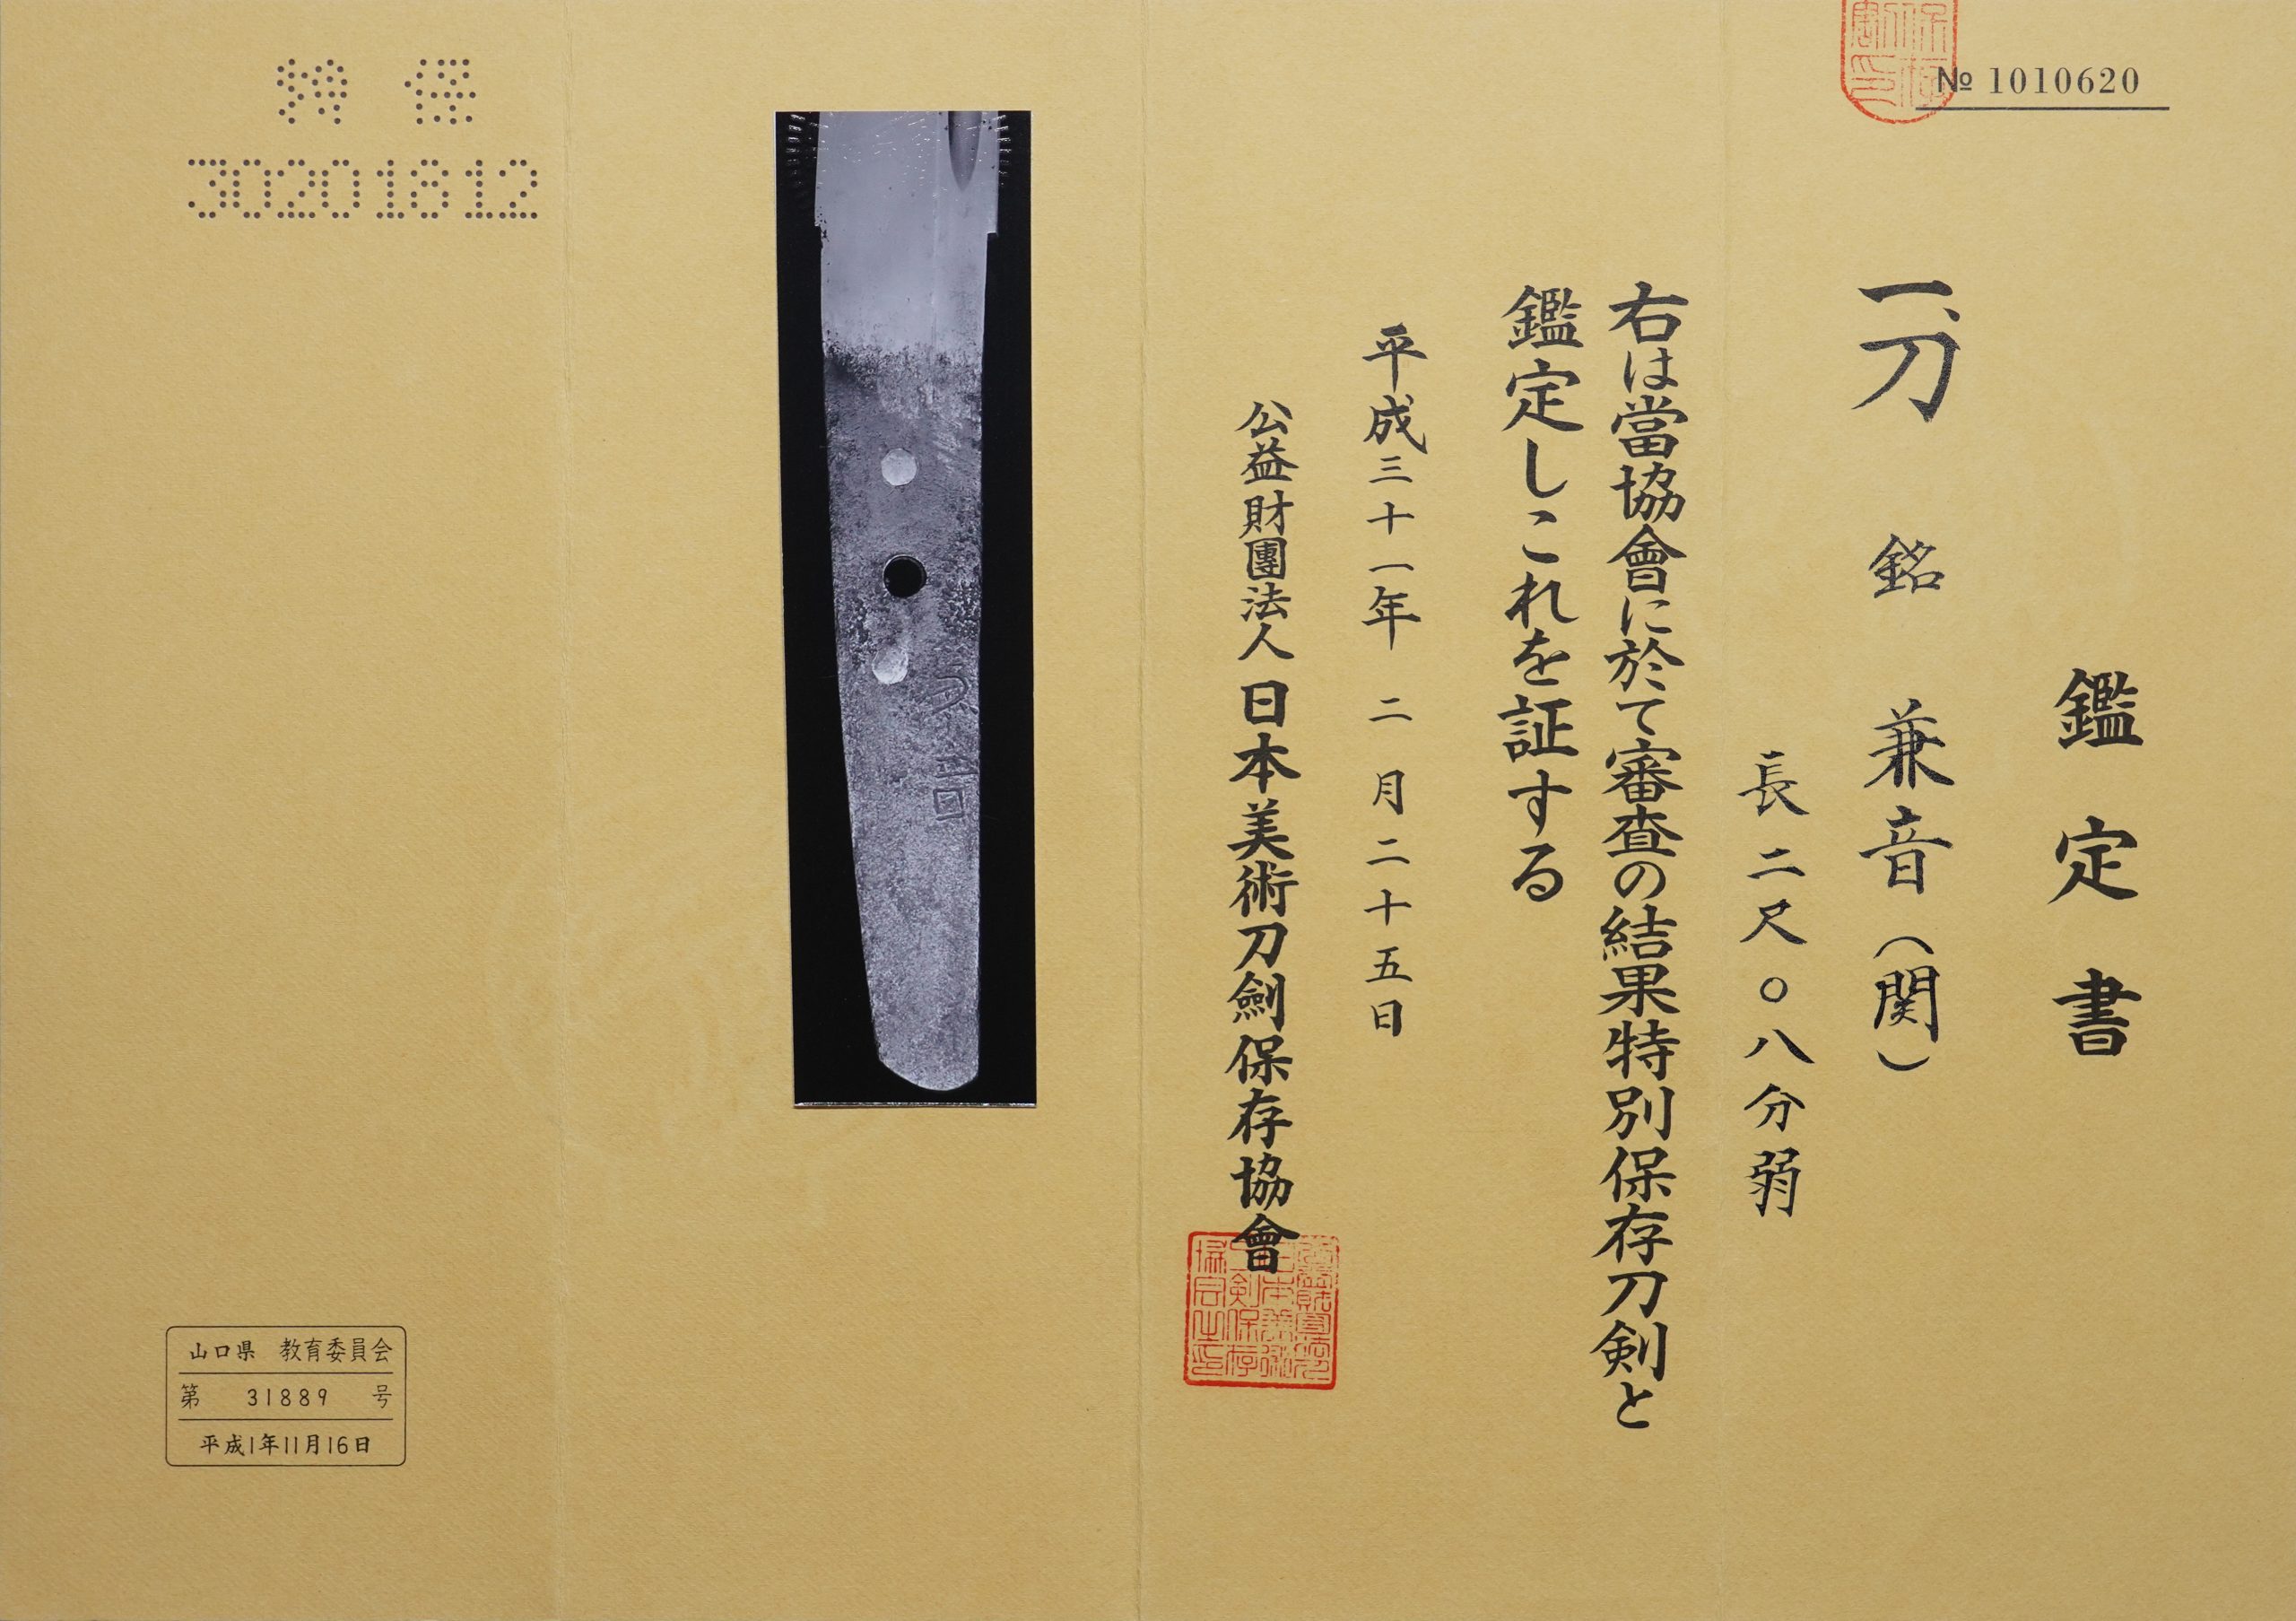 № 1010620
鑑定書
一、刀 銘 兼音(関)
長二尺〇八分弱
右は當協會に於て審査の結果特別保存刀剣と
鑑定しこれを証する
平成三十一年 二月二十五日
公益財團法人 日本美術刀劍保存協會
兼音
特保
30201812
山口県 教育委員会
第 31889 号
平成1年11月16日